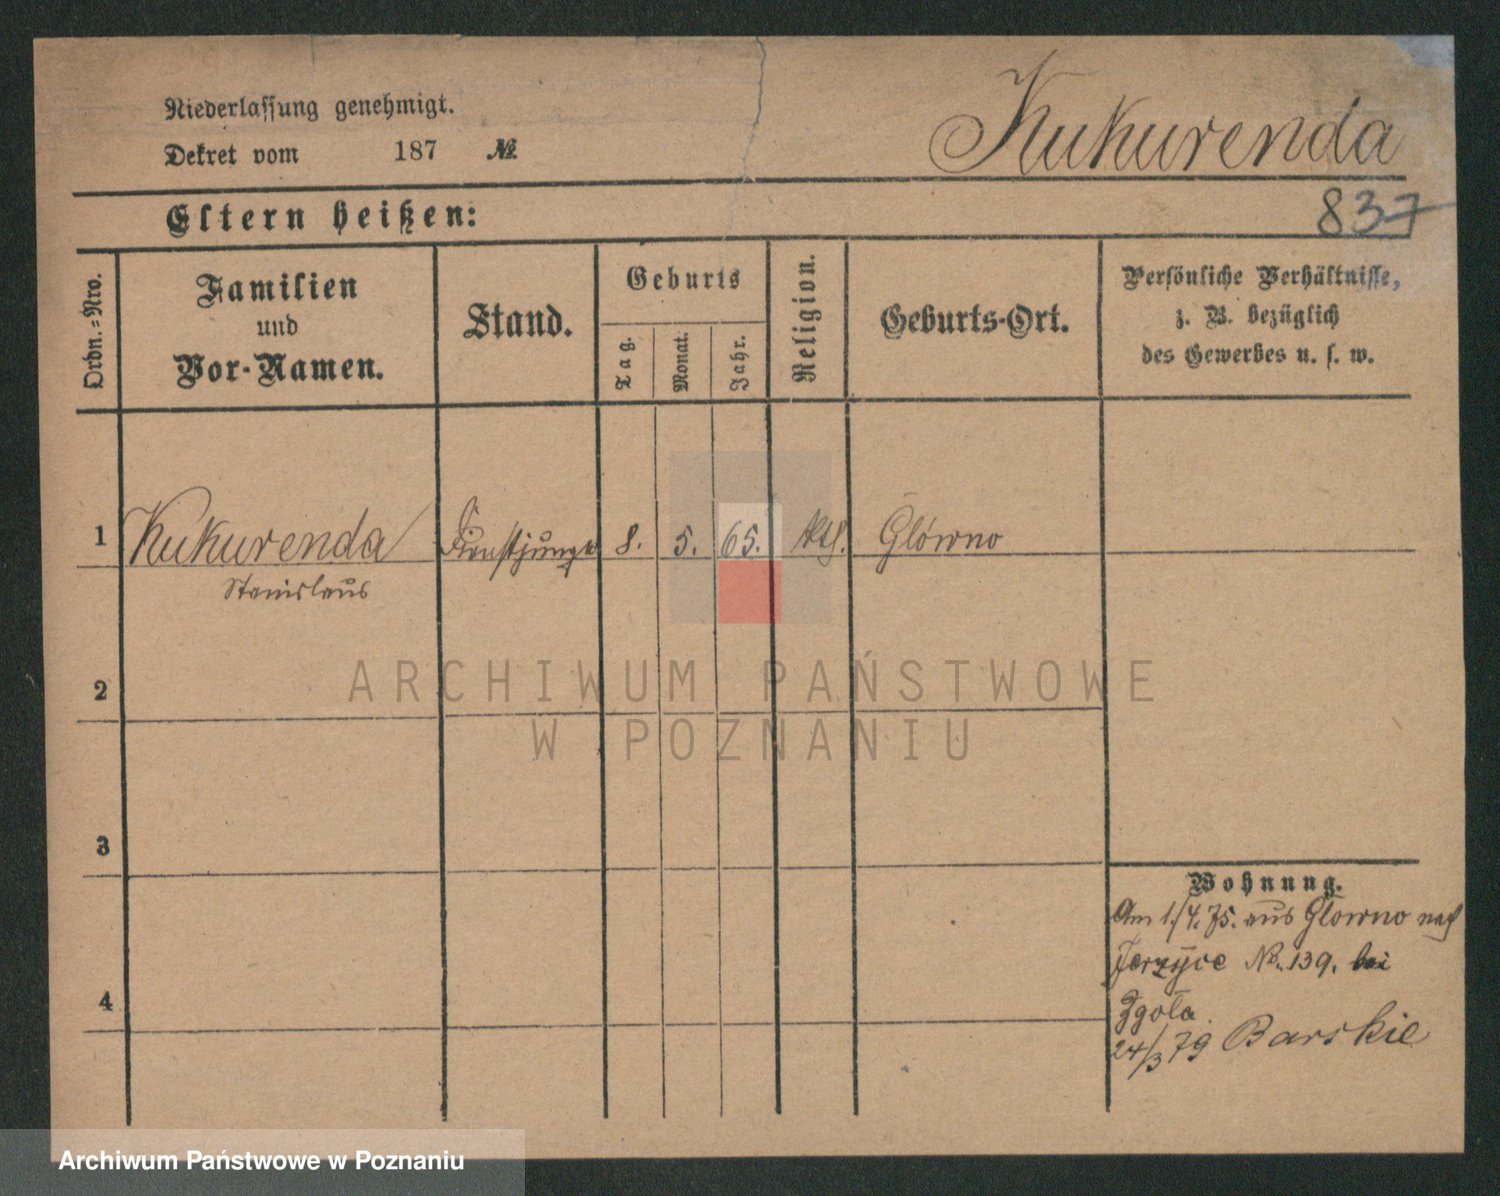 Niederlassung genehmigt.
Dekret vom 187 №
Kukurenda
837
Eltern heißen:
Ordn.=Nro.
Familien
und
Vor-Namen.
Stand.
Geburts
Tag.
Monat.
Jahr.
Religion.
Geburts-Ort.
Persönliche Verhältnisse,
z. B. bezüglich
des Gewerbes u. s. w.
1 Kukurenda Dienstjunge 8. 5. 65. kth. Główno
Stanislaus
2
3
4
Wohnung.
Am 1./4. 75. aus Główno nach
Jerzyce No. 139. bei
Zgoła.
24/3 79 Barskie
ARCHIWUM PAŃSTWOWE
W POZNANIU
Archiwum Państwowe w Poznaniu